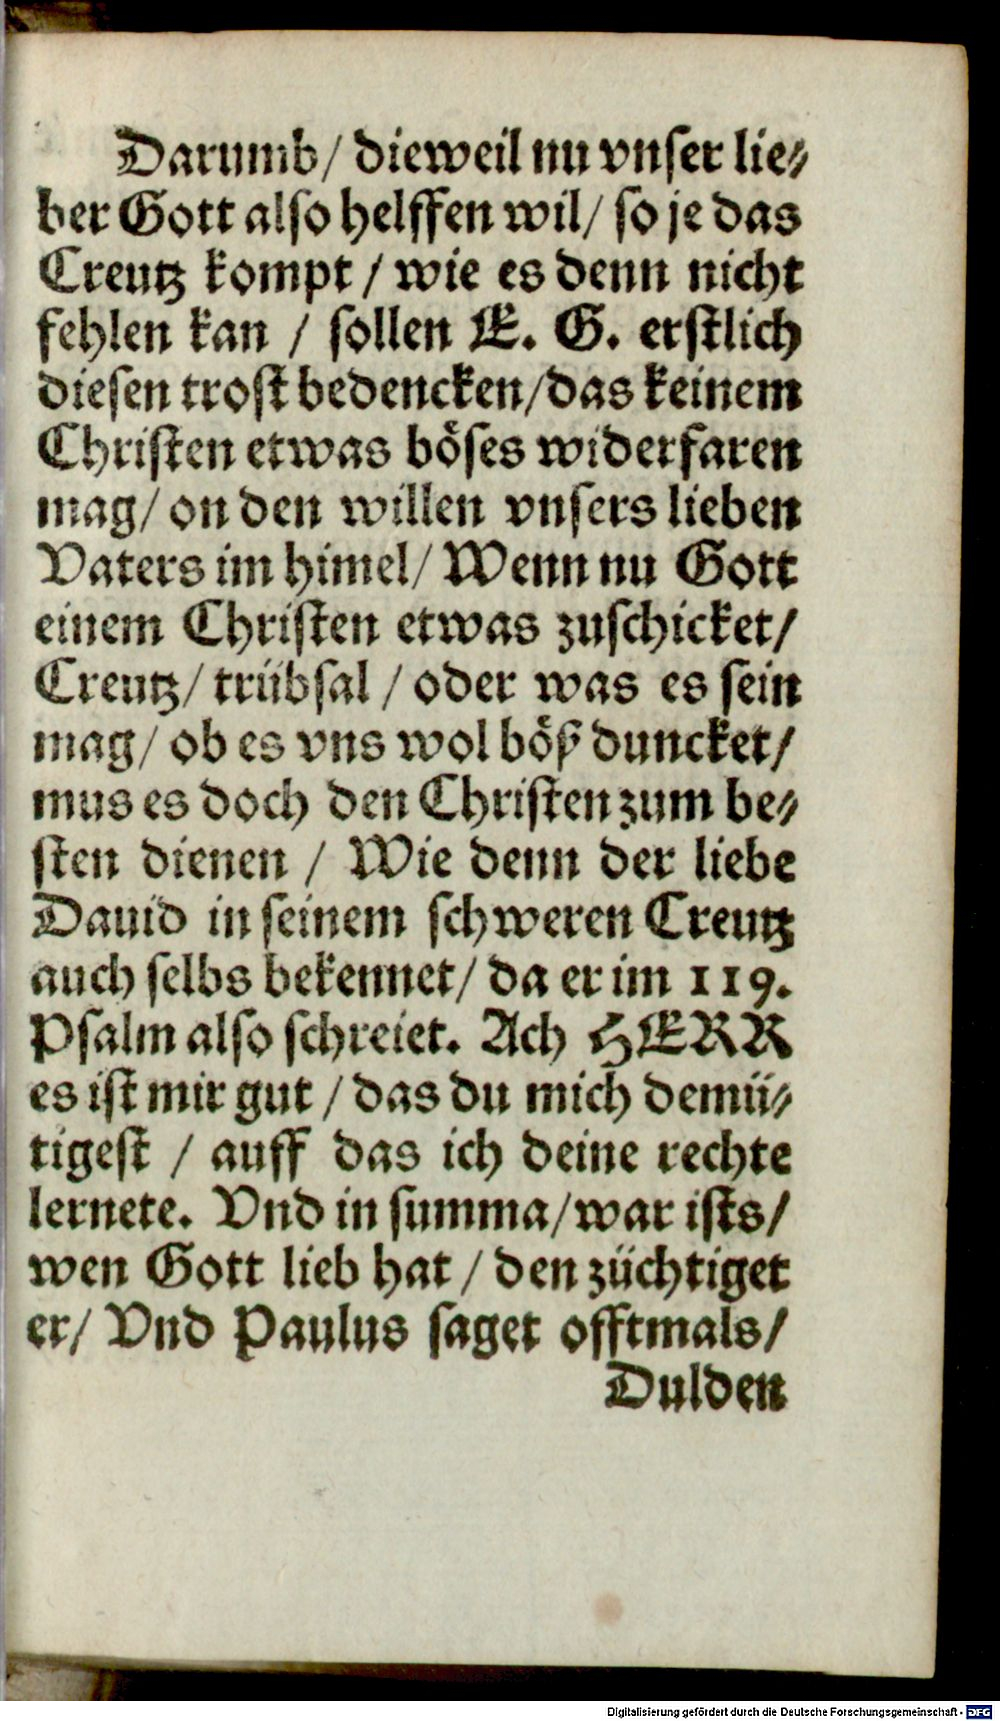 Darumb/ dieweil nu vnser lie-
ber Gott also helffen wil/ so je das
Creutz kompt / wie es denn nicht
fehlen kan / sollen E. G. erstlich
diesen trost bedencken/das keinem
Christen etwas böses widerfaren
mag/ on den willen vnsers lieben
Vaters im himel/ Wenn nu Gott
einem Christen etwas zuschicket/
Creutz/ trübsal / oder was es sein
mag/ ob es vns wol böß duncket/
mus es doch den Christen zum be-
sten dienen / Wie denn der liebe
Dauid in seinem schweren Creutz
auch selbs bekennet/ da er im 119.
Psalm also schreiet. Ach HERR
es ist mir gut / das du mich demü-
tigest / auff das ich deine rechte
lernete. Vnd in summa/war ists/
wen Gott lieb hat / den züchtiget
er/ Vnd Paulus saget offtmals/
Dulden
Digitalisierung gefördert durch die Deutsche Forschungsgemeinschaft - DFG